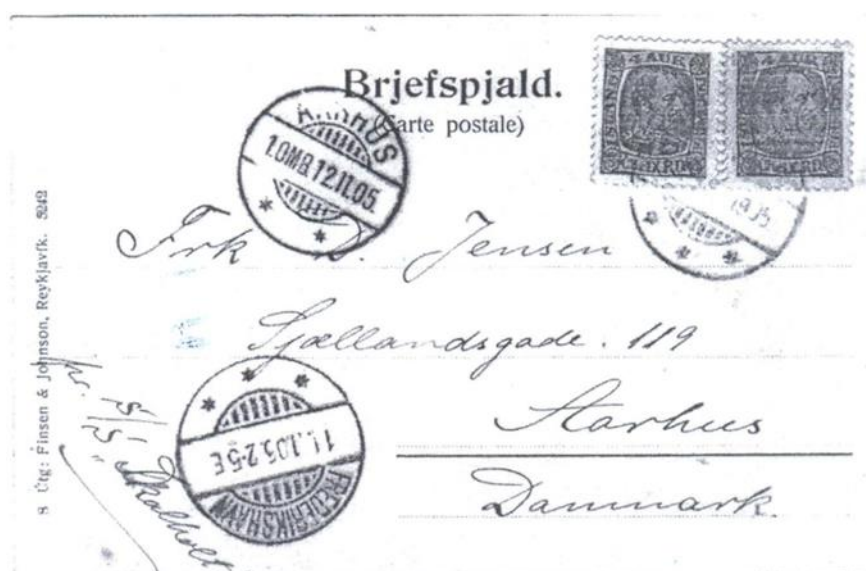 Brjefspjald.
(Carte postale)
4 AUR
4 AUR
AARHUS
1.OMB.12.11.05.
1905
Frk D. Jensen
Sjællandsgade. 119
Aarhus
Danmark.
FREDERIKSHAVN
11.1.05.2-5E
pr. 15/5. Skalholt
8 Útg: Finsen & Johnson, Reykjavík. 5242